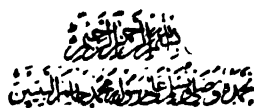 بسم الله الرحمن الرحيم
نحمده ونصلی علی رسوله محمد خاتم النبیین